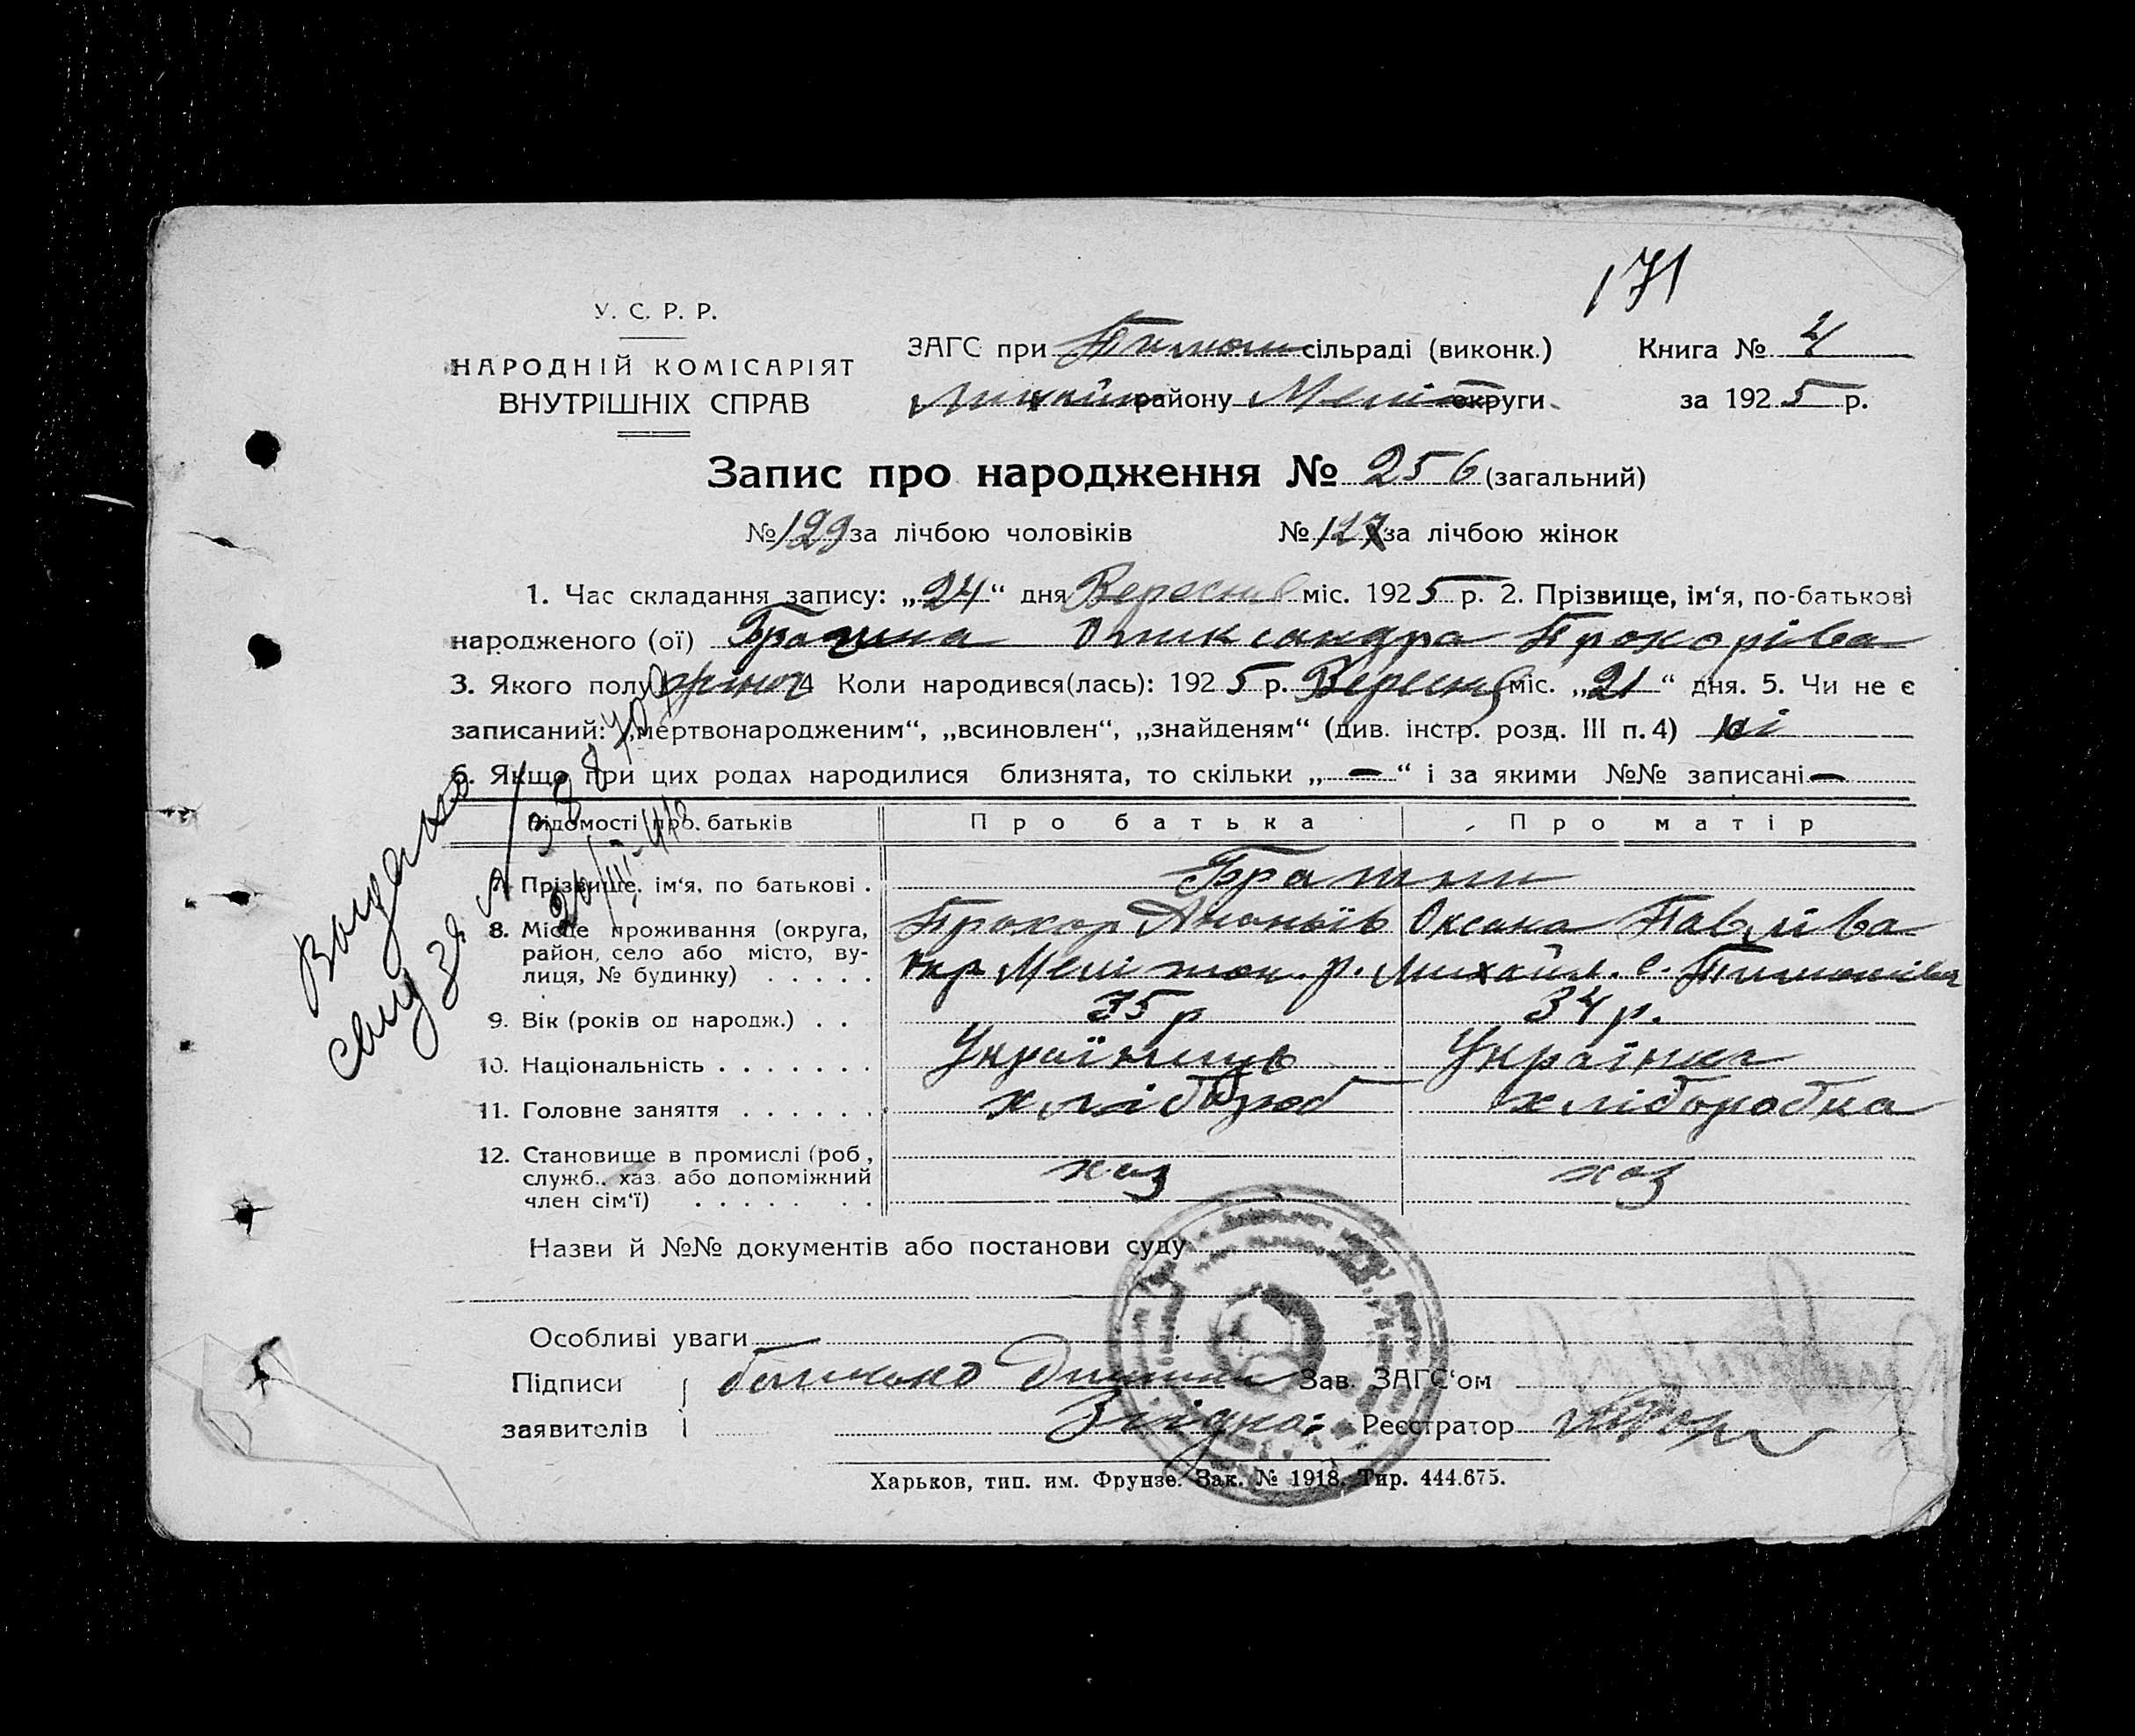 171
У. С. Р. Р.
НАРОДНІЙ КОМІСАРІЯТ
ВНУТРІШНІХ СПРАВ
ЗАГС при Тимош сільраді (виконк.)
Михайл району Меліт округи
Книга № 4
за 1925 р.
Запис про народження № 256 (загальний)
№ 129 за лічбою чоловіків № 127 за лічбою жінок
1. Час складання запису: „24“ дня Вересня міс. 1925 р. 2. Прізвище, ім‘я, по-батькові
народженого (ої) Олександра Прокоріва
3. Якого полу 4 Коли народився(лась): 1925 р. Вересня міс. „21“ дня. 5. Чи не є
записаний: „мертвонародженим“, „всиновлен“, „знайденям“ (див. інстр. розд. III п. 4) ні
6. Якщо при цих родах народилися близнята, то скільки „—“ і за якими №№ записані —
Відомості про батьків Про батька Про матір
7. Прізвище, ім‘я, по батькові .
Прокор Ананьїв Оксана Павлива
8. Місце проживання (округа,
район, село або місто, ву-
лиця, № будинку) . . . . .
Окр Меліто р. Михайл. с.
9. Вік (років од народж.) . . 35 р 34 р.
10. Національність . . . . . . . Українець Українка
11. Головне заняття . . . . . . . хлібороб хлоборобка
12. Становище в промислі (роб,
служб., хаз. або допоміжний
член сім‘ї) . . . . . . . хаз хаз
Назви й №№ документів або постанови суду
Особливі уваги —
Підписи
заявителів
Зав. ЗАГС‘ом
Згідно: Реєстратор
Харьков, тип. им. Фрунзе. Зак. № 1918. Тир. 444.675.